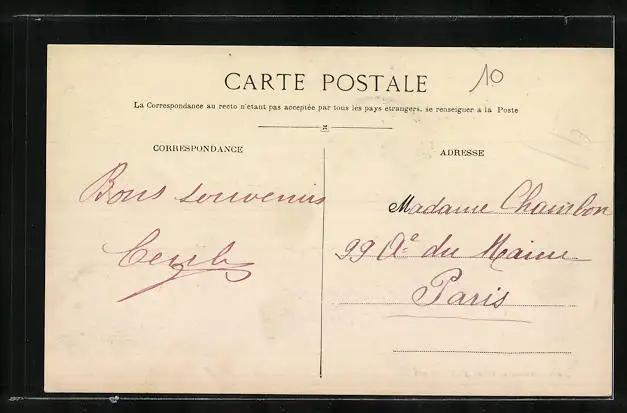 10
CARTE POSTALE
La Correspondance au recto n'étant pas acceptée par tous les pays étrangers, se renseigner à la Poste
CORRESPONDANCE
ADRESSE
Bons souvenirs
Madame Chambon
99 Ae du Maine
Paris